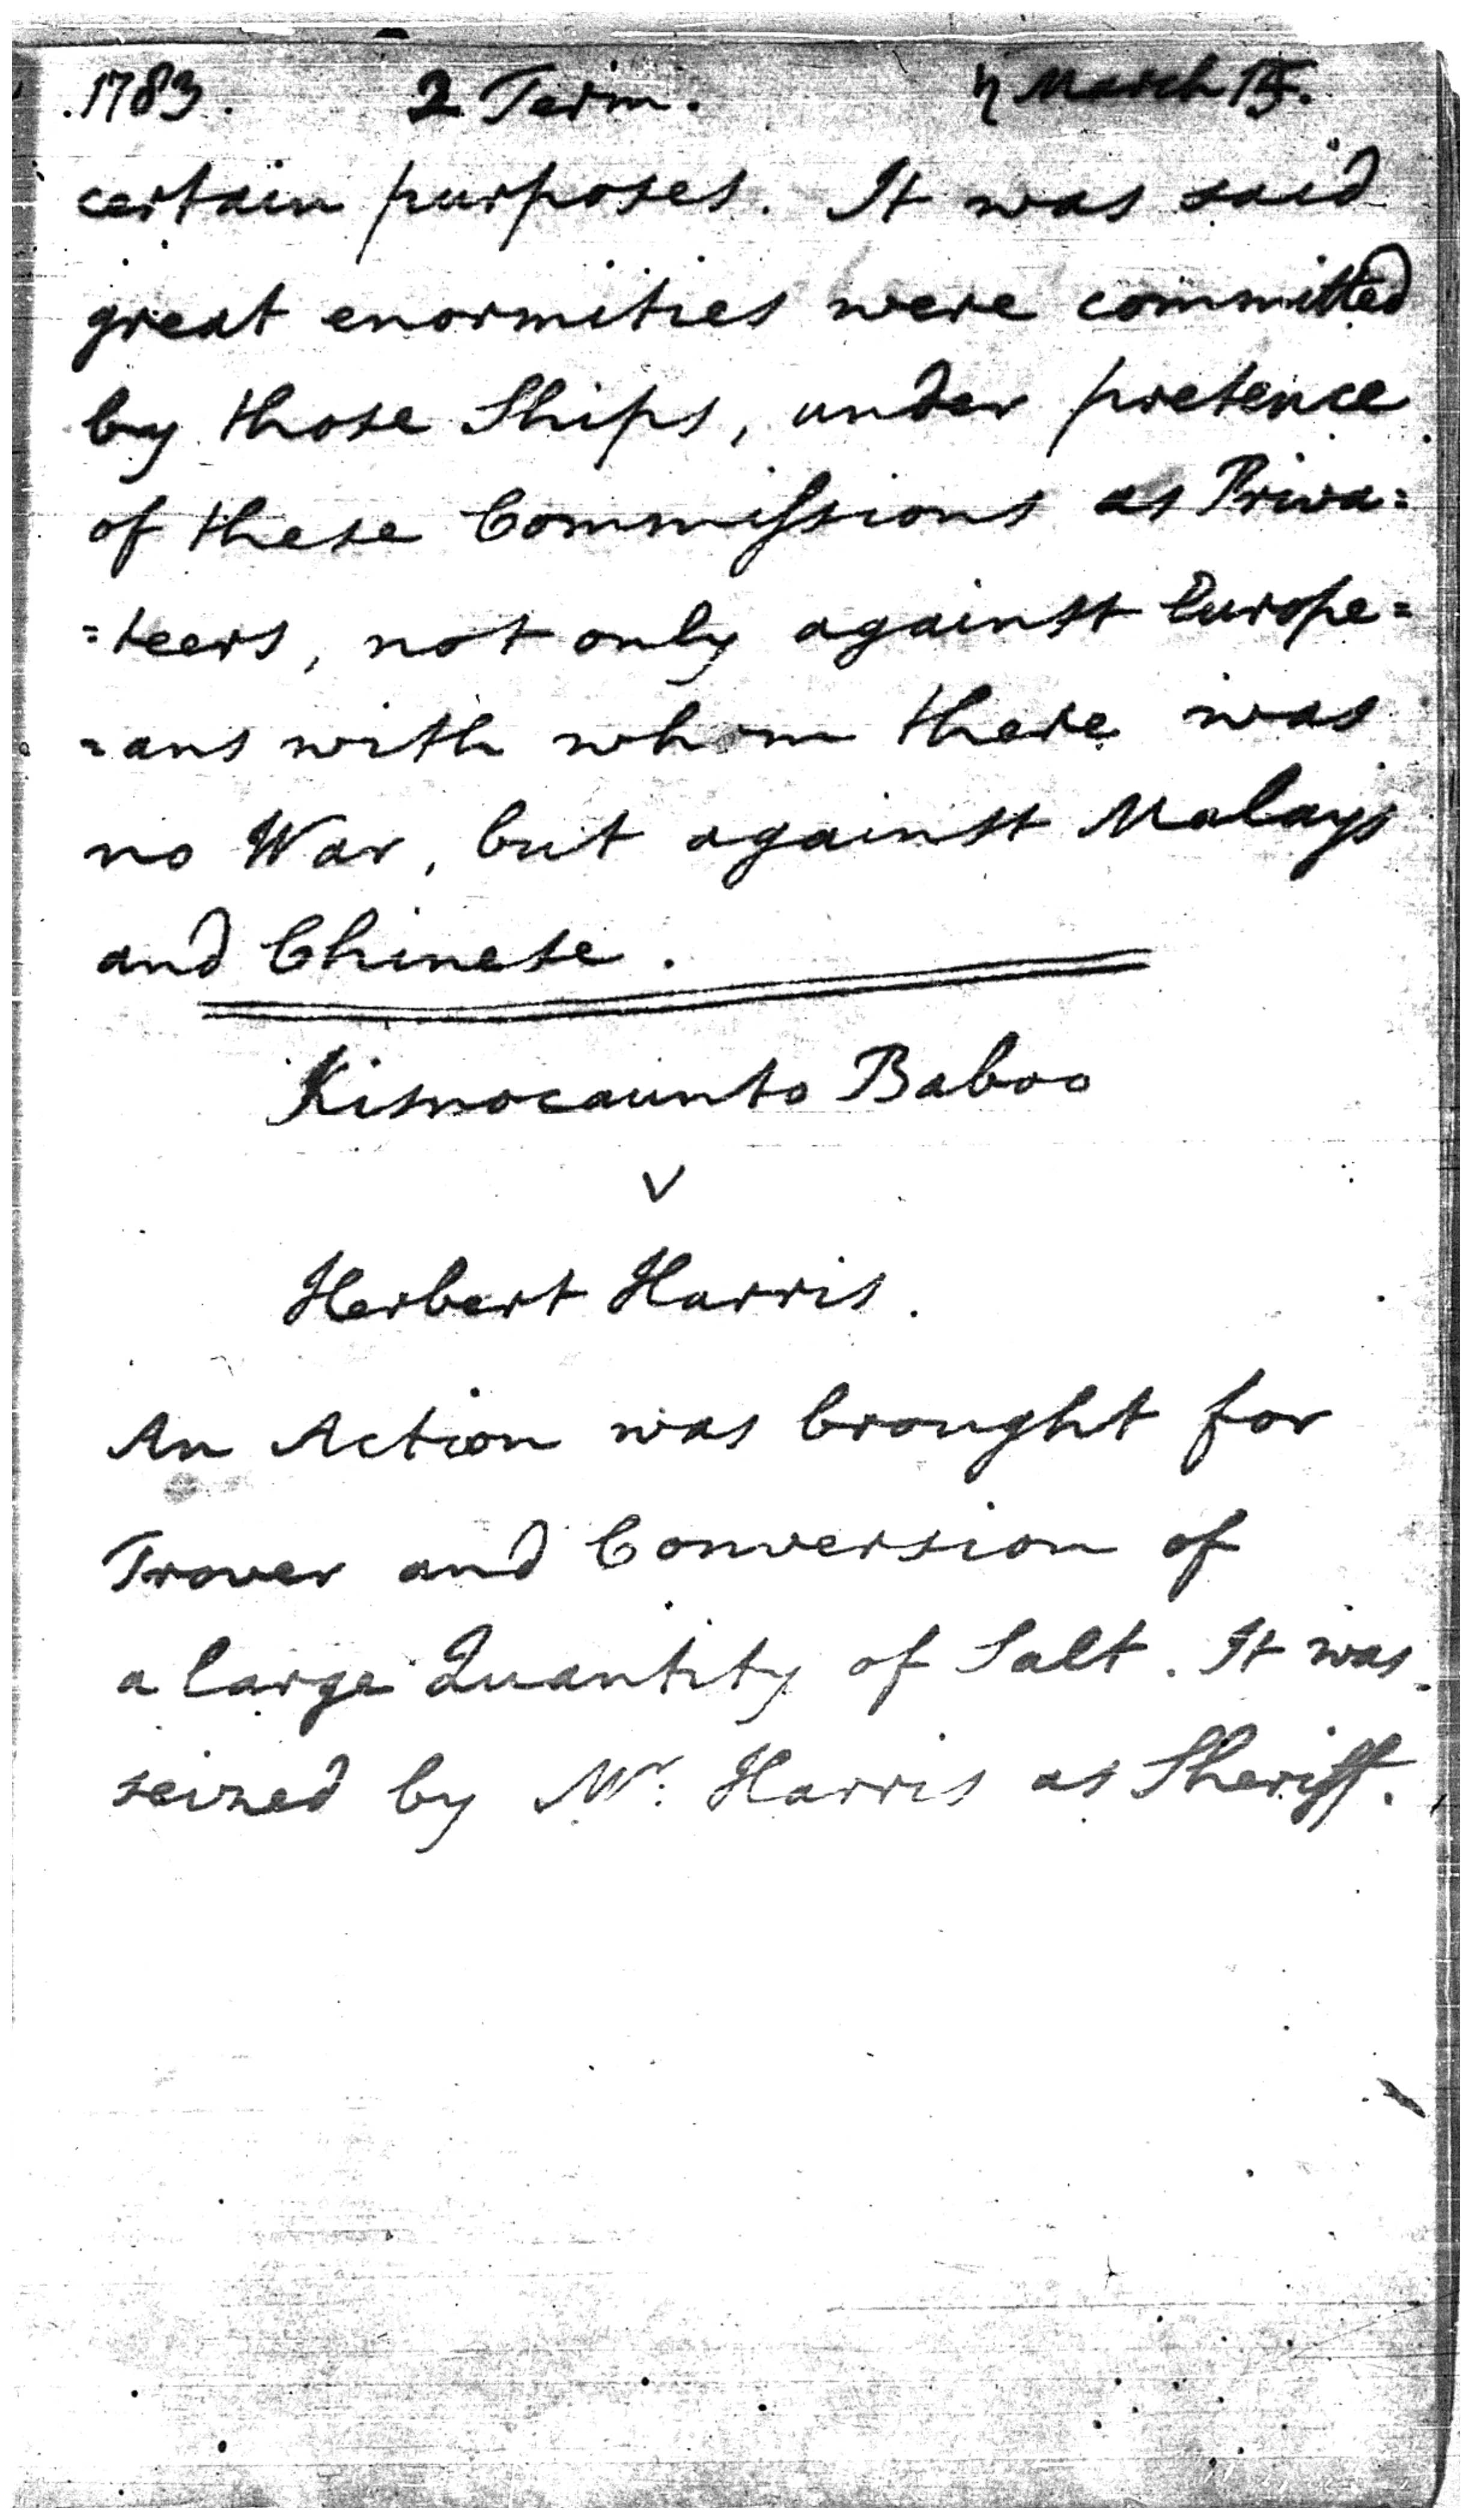 1783. 2 Term. ♄ March 15.
certain purposes. It was said
great enormities were committed
by those Ships, under pretence
of these Commissions as Priva=
=teers, not only against Europe=
=ans with whom there was
no War, but against Malays
and Chinese.
Kisnocaunto Baboo
v
Herbert Harris.
An Action was brought for
Trover and Conversion of
a large Quantity of Salt. It was
seized by Mr. Harris as Sheriff.